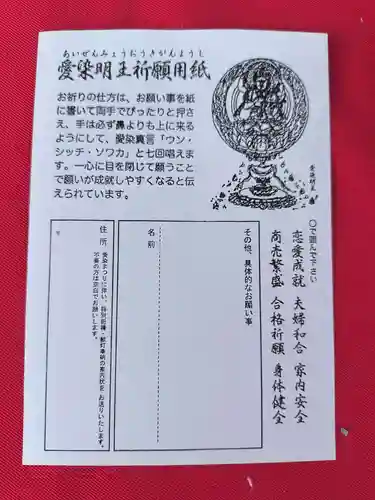 あいぜんみょうおうきがんようし
愛染明王祈願用紙
お祈りの仕方は、お願い事を紙
に書いて両手でぴったりと押さ
え、手は必ず鼻よりも上に来る
ようにして、愛染真言「ウン・
シッチ・ソワカ」と七回唱えま
す。一心に目を閉じて願うこと
で願いが成就しやすくなると伝
えられています。
愛染明王
○で囲んで下さい
恋愛成就 夫婦和合 家内安全
商売繁盛 合格祈願 身体健全
その他、具体的なお願い事
名前
住所
愛染まつりに伴い、特別祈祷・献灯奉納の案内状を お送りいたします。
不要の方は空白でお願いします。
〒